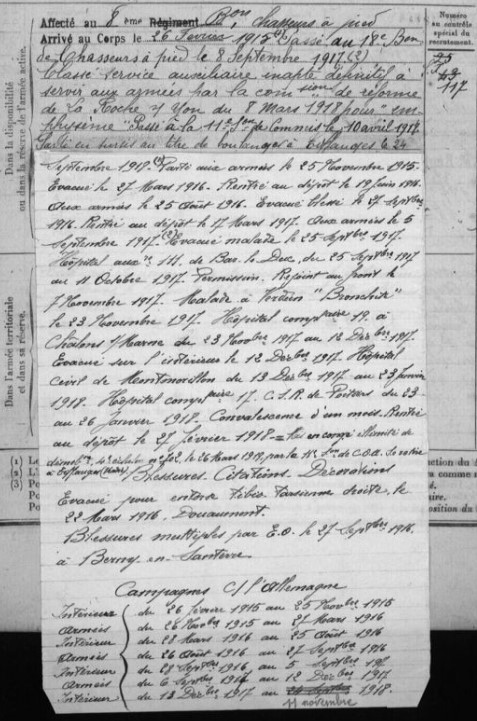 Numéro
au contrôle
spécial du
recrutement.
25
43
117
Affecté au 8 ème Régiment Bon Chasseurs à pied
Arrivé au Corps le 26 Fevrier 1915 (1) Passé au 18e Bon
de Chasseurs à pied le 8 Septembre 1917 (3)
Classé service auxiliaire inapte définitif à
servir aux armées par la comsion de réforme
de La Roche s/ Yon du 8 Mars 1918 pour " em
physème " Passé à la 11e Son de Commis le 10 avril 1918
en sursis au titre de boulanger à le 24
Septembre 1918. (1) Parti aux armées le 25 Novembre 1915.
Evacué le 27 Mars 1916. Rentré au dépôt le 19 Juin 1916.
Aux armées le 25 Août 1916. Evacué blessé le 27 Septbre
1916. Rentré au dépôt le 17 Mars 1917. Aux armées le 5
Septembre 1917. (2) Evacué malade le 25 Septbre 1917.
Hôpital aux. re 111. de Bar. le Duc, du 25 Septbre 1917
au 11 Octobre 1917. Permission. Rejoint au front le
7 Novembre 1917. Malade à Verdun " Bronchite "
le 23 Novembre 1917. Hôpital complaire 19. à
Chalons s/ Marne du 23 Novbre 1917 au 12 Décbre 1917.
Evacué sur l'intérieur le 12 Décbre 1917. Hôpital
Civil de Montmorillon du 13 Décbre 1917 au 23 Janvier
1918. Hôpital complaire 17. C.I.R. de Poitiers du 23
au 26 Janvier 1918. Convalescence d'un mois. Rentré
au dépôt le 27 février 1918 = Mis en congé illimité de
démob on 4e échelon no 402. le 26 Mars 1919, par la 11e Son de C.O.A. Se retire
à
Blessures. Citations. Décorations
Evacué pour entorse tibio tarsienne droite, le
22 Mars 1916. Douaumont.
Blessures multiples par E.O. le 27 Septbre 1916.
à Berny-en-Santerre
Campagnes C/ l'Allemagne
Intérieur du 26 février 1915 au 25 Novbre 1915
Armées du 26 Novbre 1915 au 27 Mars 1916
Intérieur du 28 Mars 1916 au 25 Août 1916
Armées du 26 Août 1916 au 27 Septbre 1916
Intérieur du 28 Septbre 1916 au 5 Septbre 191
Armées du 6 Septbre 1917 au 12 Décbre 1917
Intérieur du 13 Décbre 1917 au 24 Septbre 1918.
11 novembre
Dans la disponibilité
ou dans la réserve de l'armée active.
Dans l'armée territoriale
et dans sa réserve.
(1) Le
(2) L'I
(3) Po
Po
Po